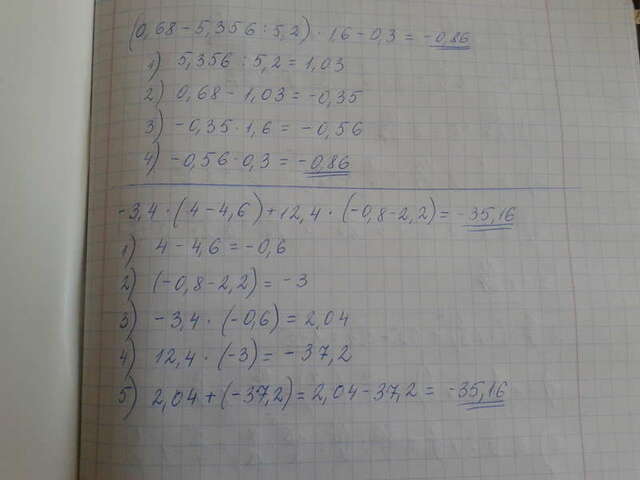 (0,68 - 5,356 : 5,2) · 1,6 - 0,3 = -0,86
1) 5,356 : 5,2 = 1,03
2) 0,68 - 1,03 = -0,35
3) -0,35 · 1,6 = -0,56
4) -0,56 - 0,3 = -0,86
-3,4 · (4 - 4,6) + 12,4 · (-0,8 - 2,2) = -35,16
1) 4 - 4,6 = -0,6
2) (-0,8 - 2,2) = -3
3) -3,4 · (-0,6) = 2,04
4) 12,4 · (-3) = -37,2
5) 2,04 + (-37,2) = 2,04 - 37,2 = -35,16